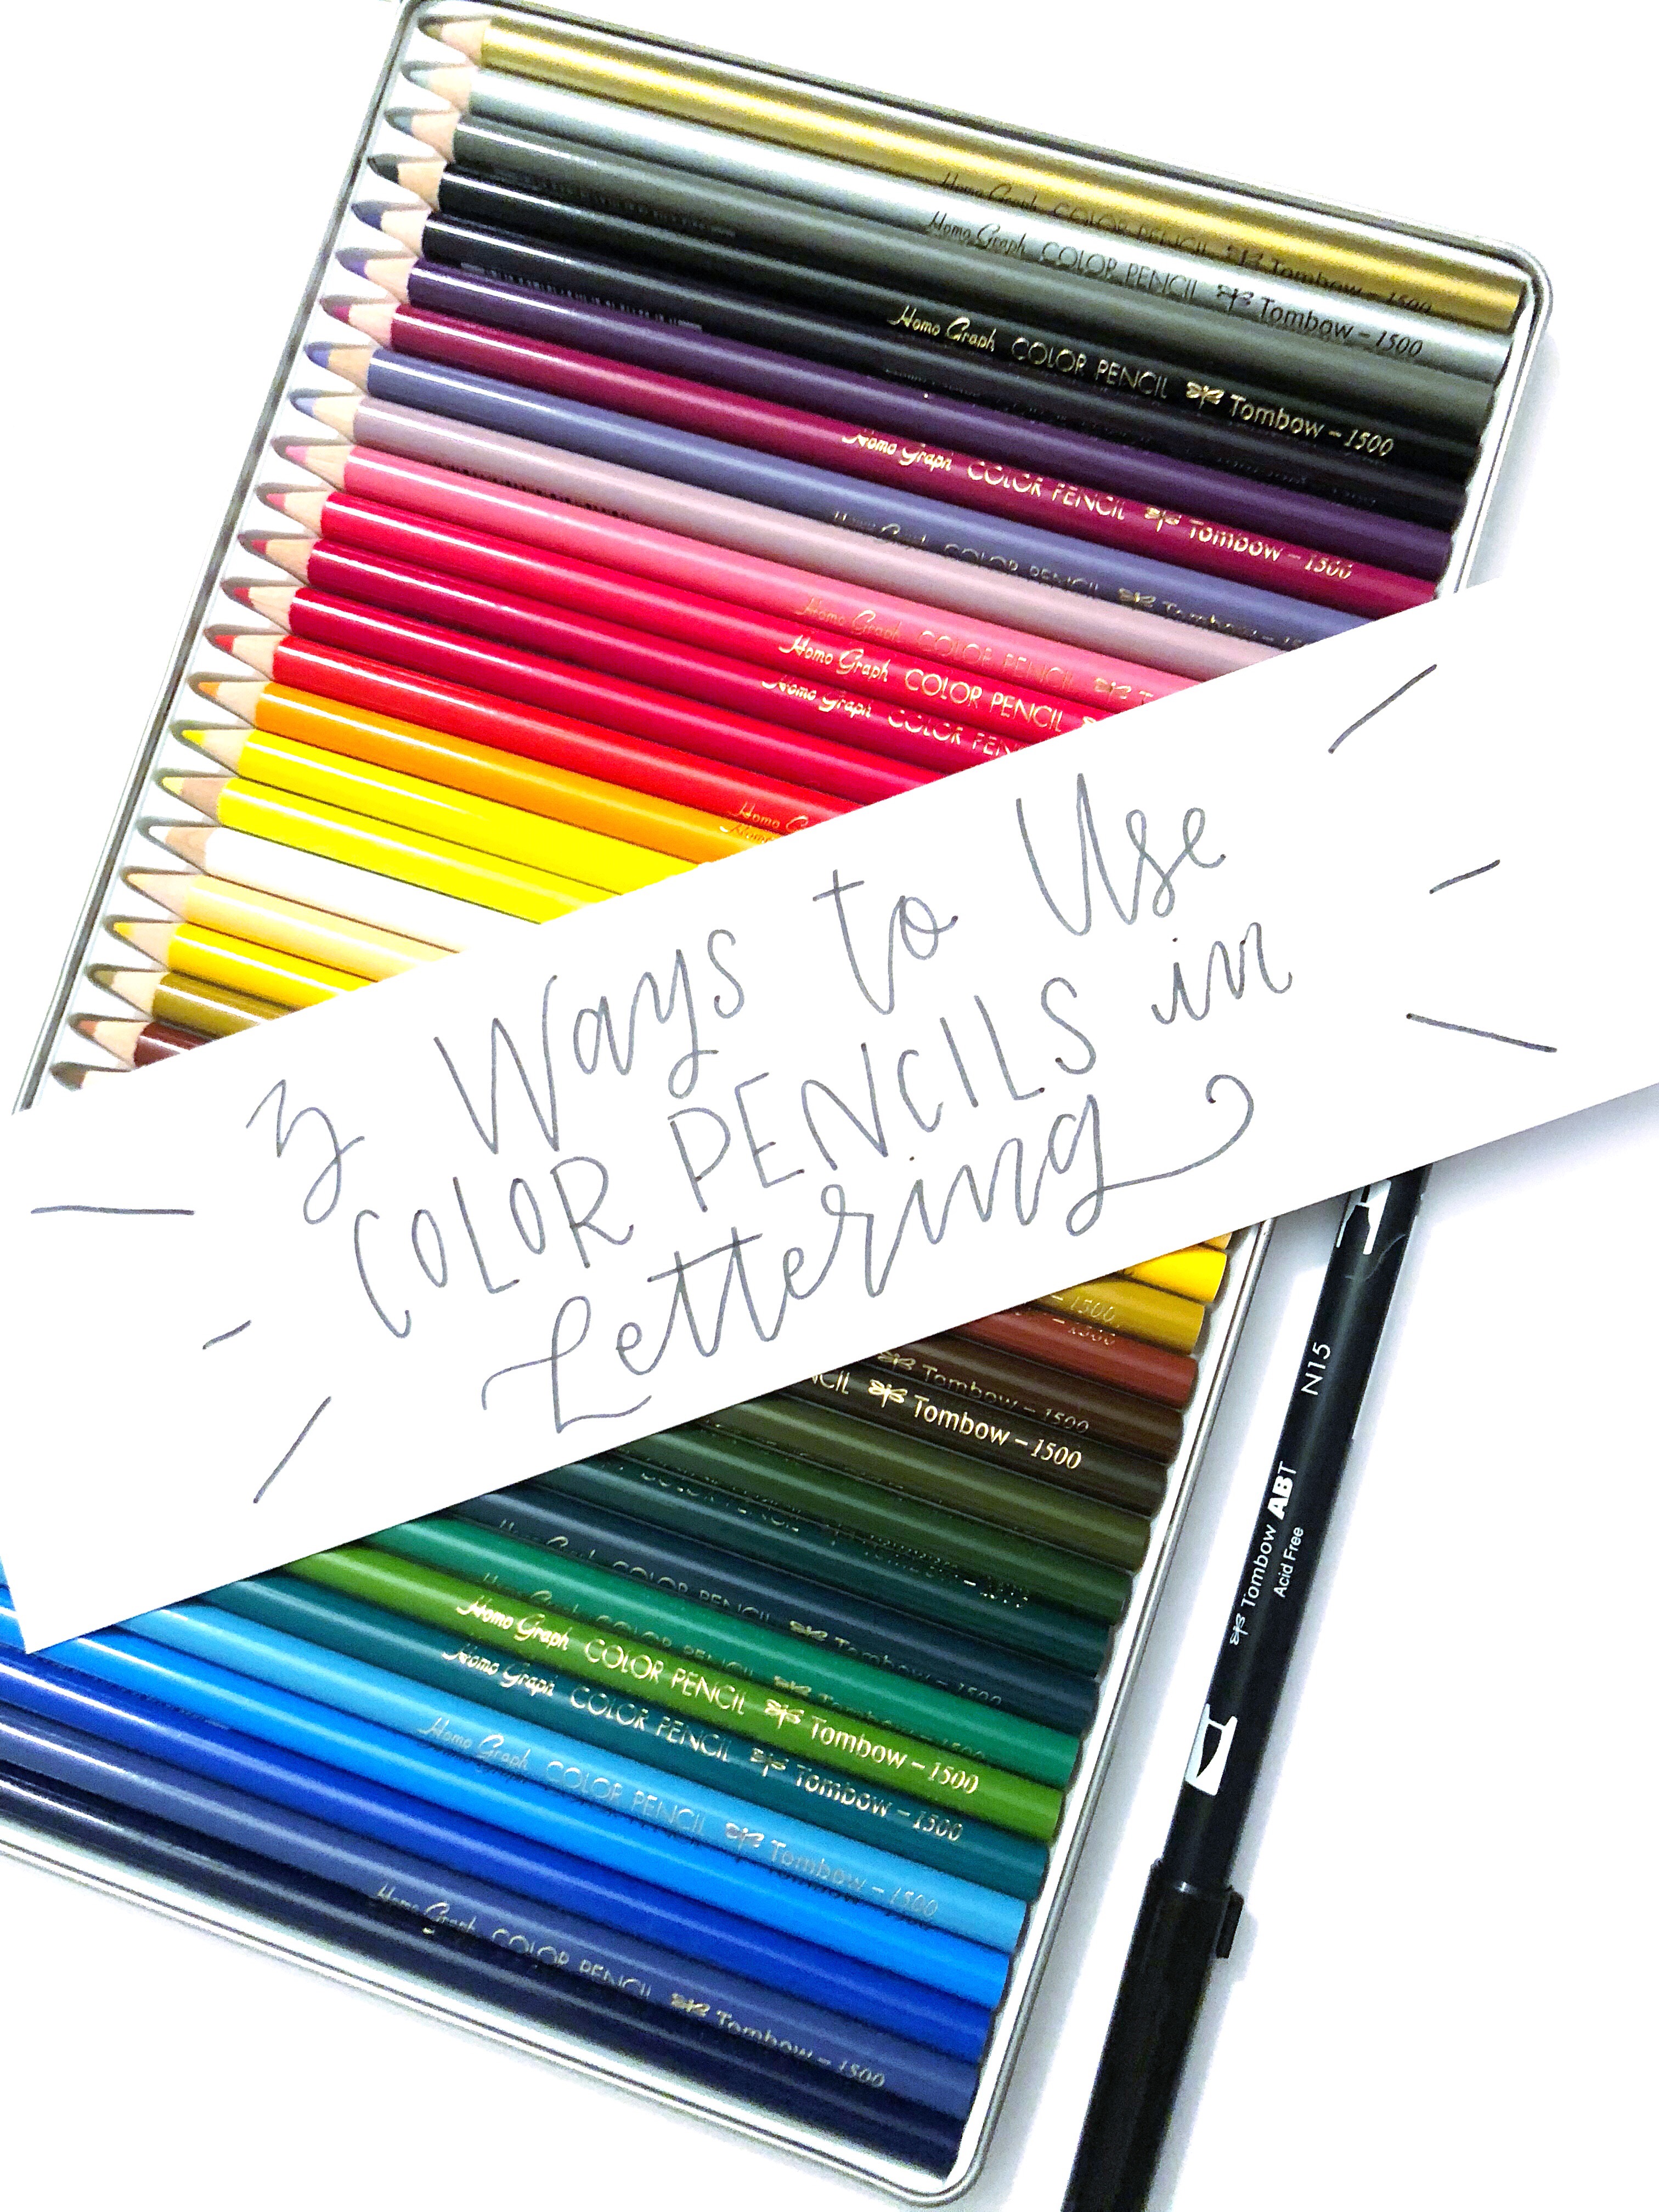 Homo Graph COLOR PENCIL Tombow - 1500
Homo Graph COLOR PENCIL Tombow - 1500
Homo Graph COLOR PENCIL Tombow - 1500
Homo Graph COLOR PENCIL Tombow - 1500
Homo Graph COLOR PENCIL Tombow - 15
Homo Graph COLOR PENCIL
Homo Graph COLOR PENCIL
Homo Graph COLOR PEN
Homo
Homo
3 Ways to Use
COLOR PENCILS in
Lettering
1500
1500
Tombow - 1500
Tombow - 1500
COLOR PENCIL
COLOR PENCIL Tombow - 1500
COLOR PENCIL Tombow
Homo Graph COLOR PENCIL Tombow - 1500
Homo Graph COLOR PENCIL Tombow - 1500
Homo Graph COLOR PENCIL Tombow - 1500
Homo Graph COLOR PENCIL Tombow - 1500
N15
Tombow ABT
Acid Free